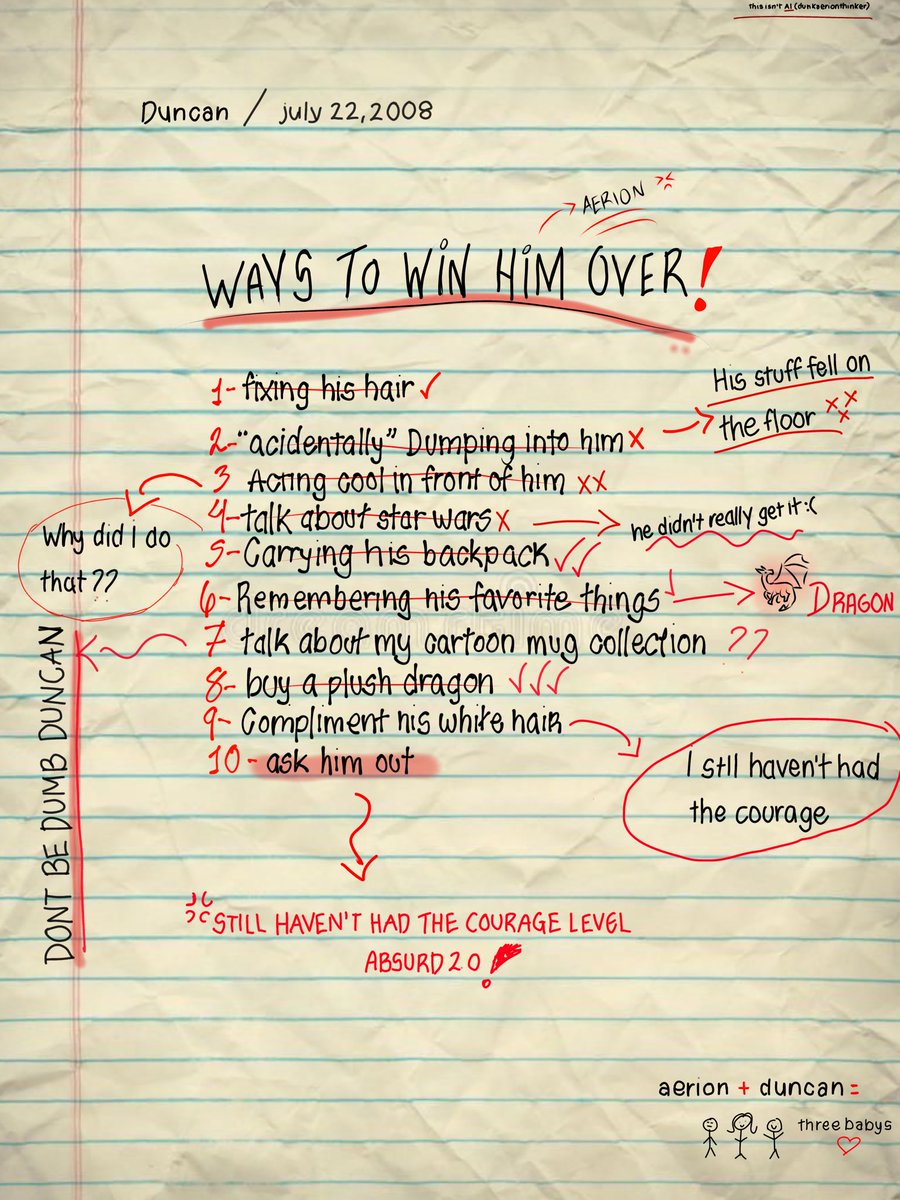 This isn't AI (dunkaerionthinker)
Duncan / july 22,2008
AERION
WAYS TO WIN HIM OVER!
1- fixing his hair ✓
2-"acidentally" Dumping into him x
His stuff fell on
the floor xxx
3 Acting cool in front of him xx
Why did i do
that??
4-talk about star wars x
he didn't really get it :(
5- Carrying his backpack ✓✓
6-Remembering his favorite things
DRAGON
7 talk about my cartoon mug collection ??
DONT BE DUMB DUNCAN
8- buy a plush dragon ✓✓✓
9- Compliment his white hair
I still haven't had
the courage
10- ask him out
STILL HAVEN'T HAD THE COURAGE LEVEL
ABSURD 2.0!
aerion + duncan =
three babys